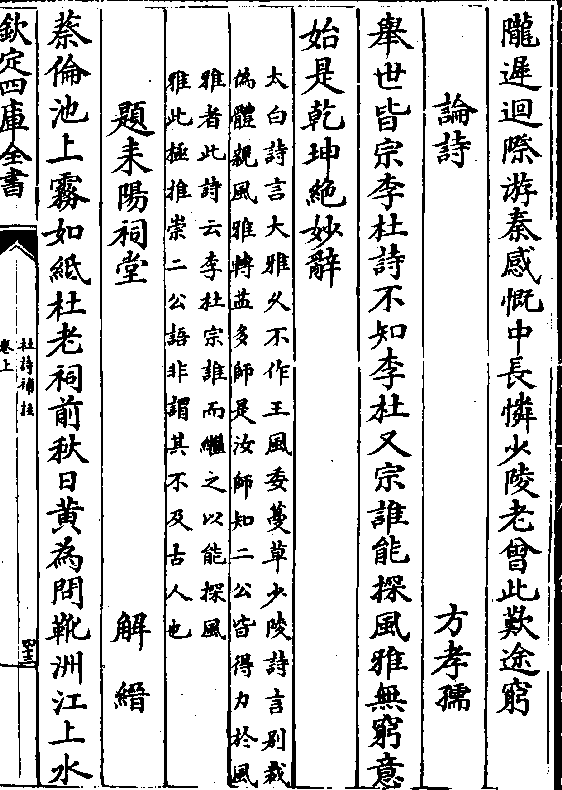 隴遲迴際游秦感慨中長憐少陵老曾此歎途窮
論詩 方孝孺
舉世皆宗李杜詩不知李杜又宗誰能探風雅無窮意
始是乾坤絶妙辭
太白詩言大雅久不作王風委蔓草少陵詩言别裁
偽體親風雅轉益多師是汝師知二公皆得力於風
雅者此詩云李杜宗誰而繼之以能探風
雅此極推崇二公語非謂其不及古人也
題耒陽祠堂 解縉
蔡倫池上霧如紙杜老祠前秋日黄為問靴洲江上水
欽定四庫全書
杜詩補註
卷上